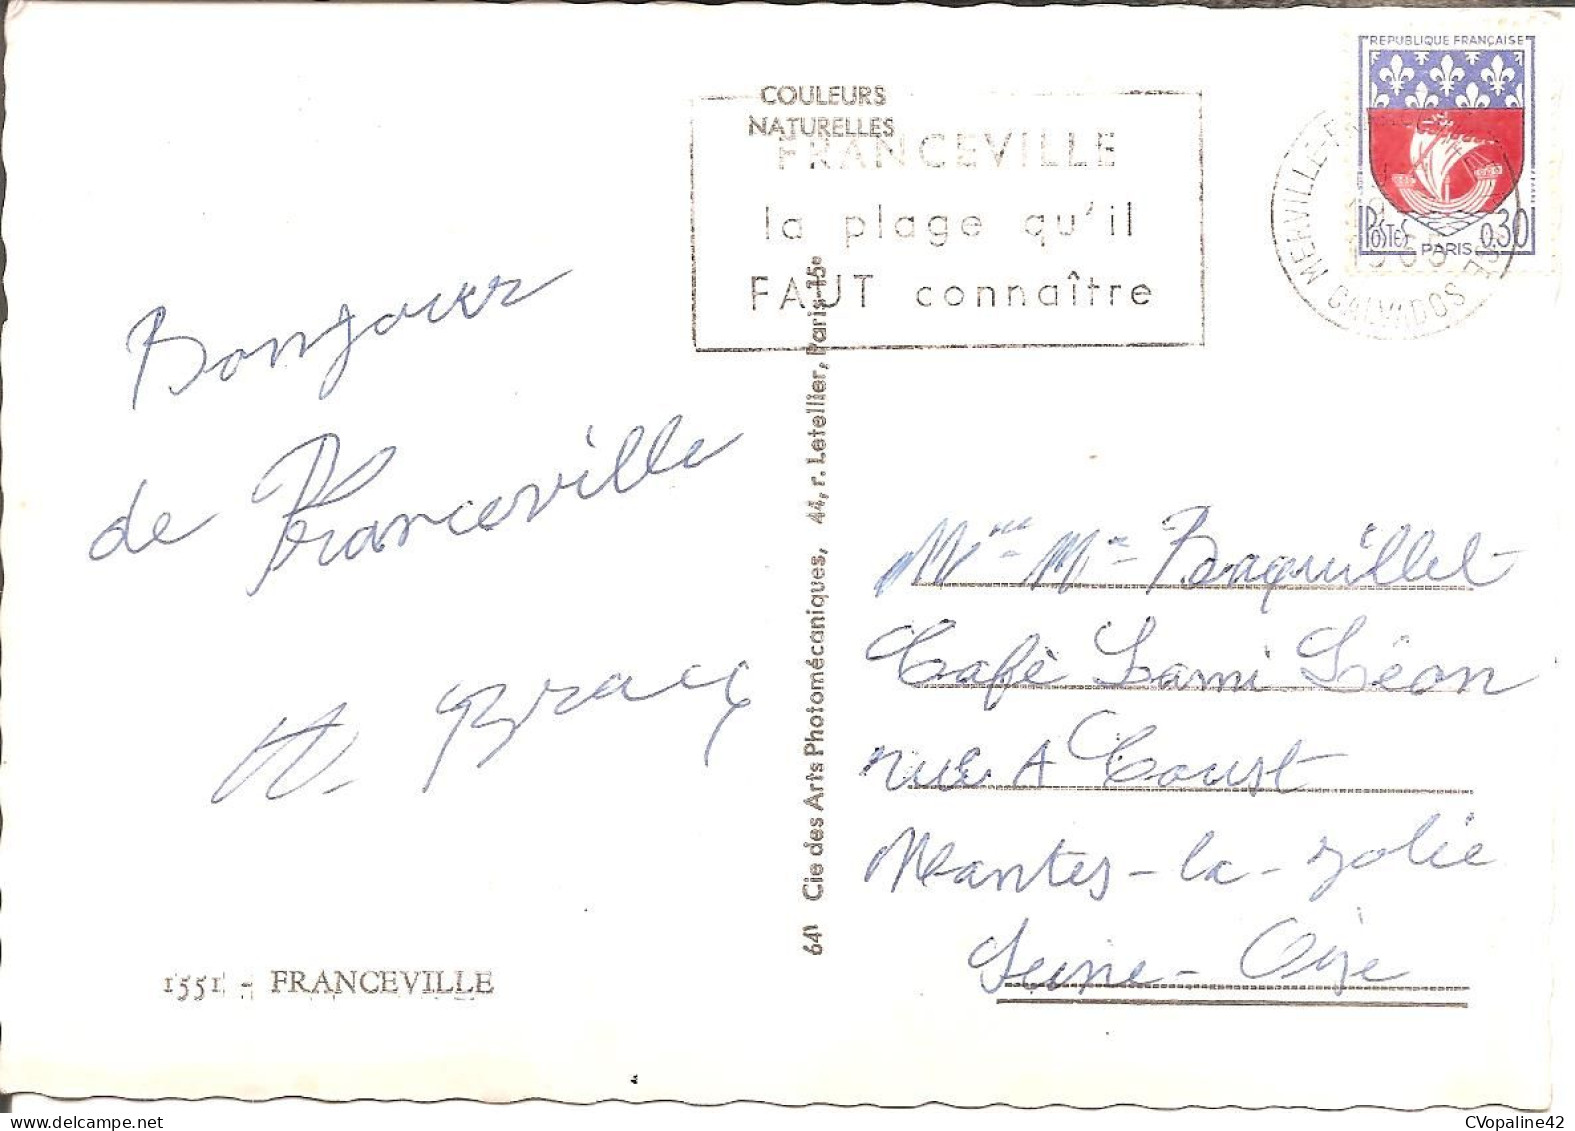 COULEURS
NATURELLES
FRANCEVILLE
la plage qu'il
FAUT connaître
REPUBLIQUE FRANÇAISE
POSTES
PARIS
0,30
MERVILLE-
CALVADOS
1965
Bonjour
de Franceville
1551 - FRANCEVILLE
641 Cie des Arts Photomécaniques, 44, r. Letellier, Paris-15e
Mr Me Baquillet
Café Lami Léon
rue A Coust
Mantes-la-Jolie
Seine-Oise
delcampe.net
CVopaline42